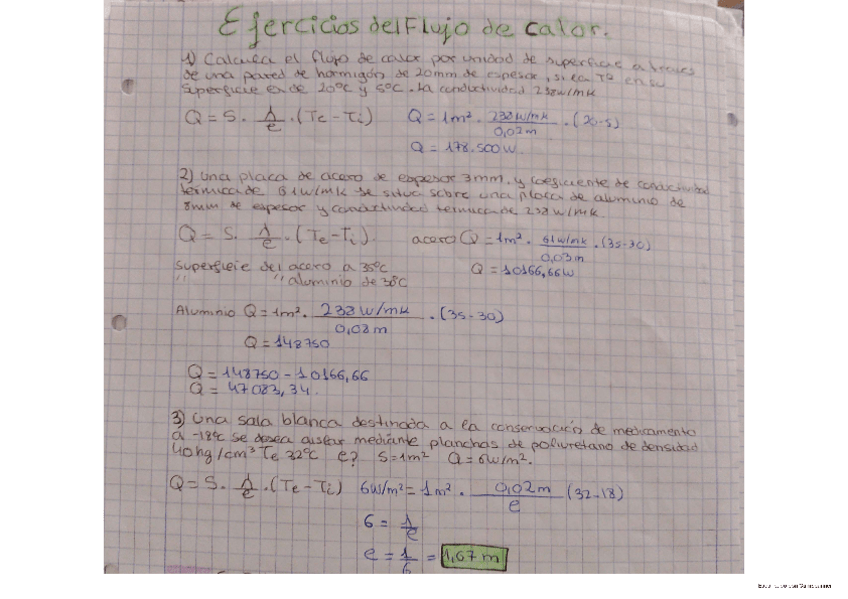 Ejercicios del Flujo de calor.
1) Calcula el flujo de calor por unidad de superficie a través
de una pared de hormigón de 20mm de espesor, si la Tª en su
superficie es de 20ºC y 5ºC. La conductividad 238w/mk
Q = S. λ/e . (Te - Ti) Q = 1m². 238w/mk/0,02m . (20-5)
Q = 178.500w.
2) Una placa de acero de espesor 3mm. y coeficiente de conductividad
térmica de 61w/mk se situa sobre una placa de aluminio de
8mm de espesor y conductividad termica de 238w/mk.
Q = S. λ/e . (Te - Ti). acero Q = 1m². 61w/mk/0,03m . (35-30)
superficie del acero a 35ºC Q = 10166,66w
" " aluminio de 30ºC
Aluminio Q = 1m². 238w/mk/0,08m . (35-30)
Q = 148750
Q = 148750 - 10166,66
Q = 47083,34.
3) Una sala blanca destinada a la conservación de medicamento
a -18ºC se desea aislar mediante planchas de poliuretano de densidad
40hg/cm³ Te 32ºC e? S=1m² Q=6w/m².
Q = S. λ/e . (Te - Ti) 6w/m² = 1m². 0,02m/e (32-18)
6 = 1/e
e = 1/6 = 1,67m